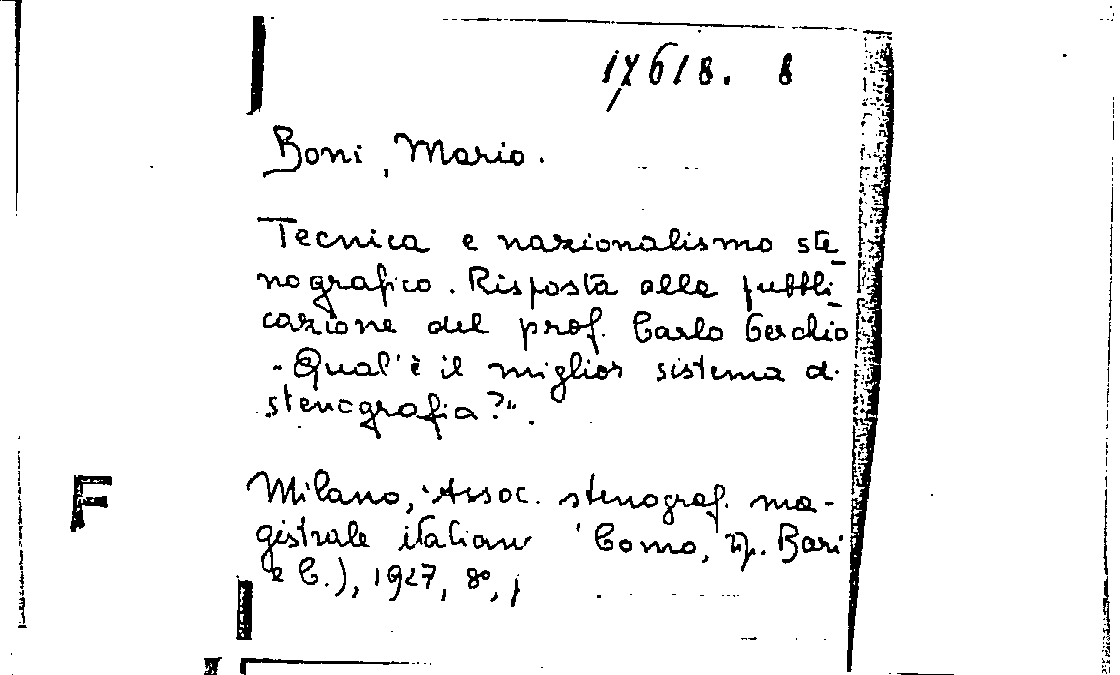 17618. 8
Boni, Mario.
Tecnica e nazionalismo ste_
nografico. Risposta alla pubbli_
cazione del prof. Carlo Cerchio
"Qual'è il miglior sistema di
stenografia?".
Milano, Assoc. stenograf. ma-
gistrale italiana (Como, tip. Bari
e C.), 1927, 8º, p
F